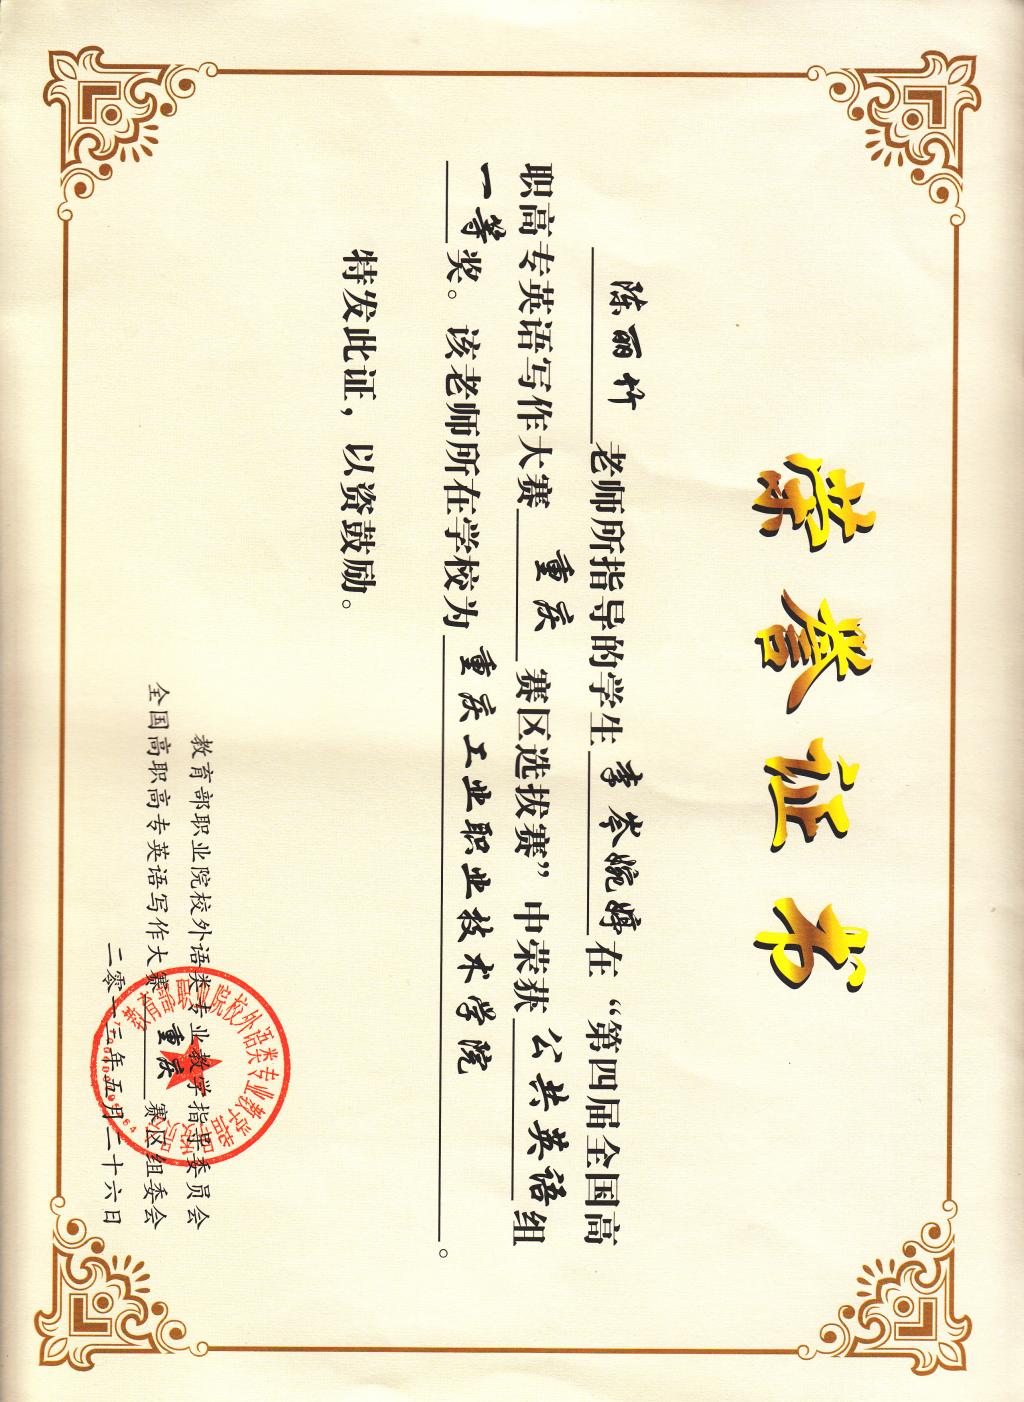 荣誉证书
陈丽竹老师所指导的学生李岑婉婷在“第四届全国高
职高专英语写作大赛重庆赛区选拔赛”中荣获公共英语组
一等奖。该老师所在学校为重庆工业职业技术学院。
特发此证，以资鼓励。
教育部职业院校外语类专业教学指导委员会
全国高职高专英语写作大赛重庆赛区组委会
二零一三年五月二十六日
教育部职业院校外语类专业教学指导委员会